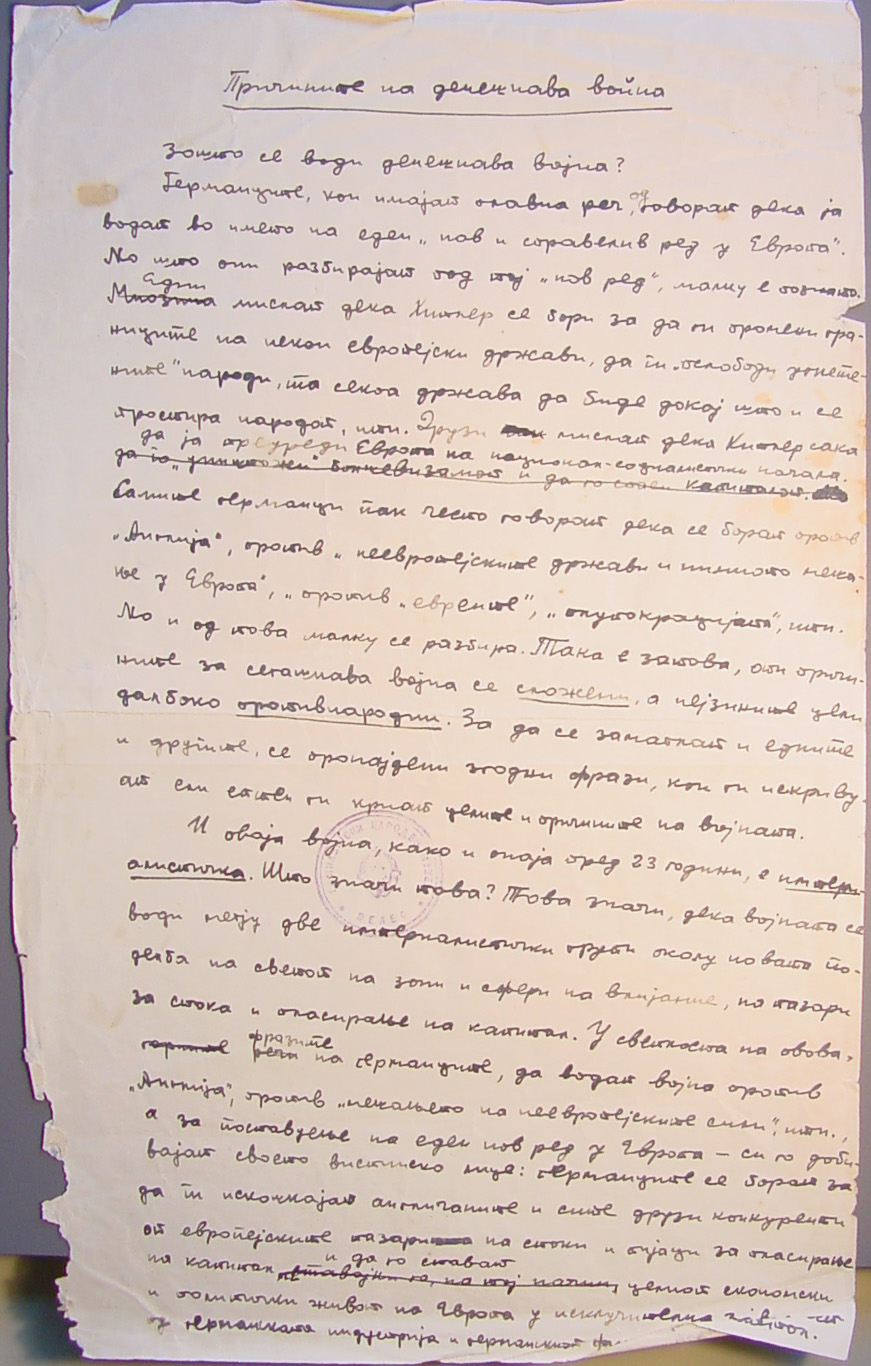 Причините на денежнава война
Зошто се води денежнава војна?
Германците, кои имајат главна реч, говорат дека ја
водат во името на еден „нов и справелив ред у Европа“.
Но што они разбирајат под тој „нов ред“, малку е познато.
Едни
мислат дека Хитлер се бори за да ги промени гра-
ниците на некои европејски држави, да ги „ослободи угнете-
ните“ народи, та секоа држава да биде докај што и се
простира народот, итн. Друзи мислат дека Хитлер сака
да ја преуреди Европа на национал-социалистички начала.
да го „уништожи“ болшевизамот и да го спаси капиталот.
Самите германци пак често говорат дека се борат против
„Англија“, против „неевропејските држави и нимното мека-
ње у Европа“, „против „евреите“, „плутокрацијата“, итн.
Но и од това малку се разбира. Така е затова, оти причи-
ните за сегажнава војна се сложени, а нејзините цели
далбоко противнародни. За да се заматкат и едните
и другите, се пронајдени згодни фрази, кои ги искриву-
ат или сосем ги кријат целите и причините на војната.
И оваја војна, како и онаја пред 23 години, е импери-
алистичка. Што значи това? Това значи, дека војната се
води меѓу две империалистички групи околу новата по-
делба на светот на зони и сфери на влијание, на пазари
за стока и пласирање на капитал. У светлоста на овова,
фразите
на германците, да водат војна против
„Англија“, против „мекањето на неевропејските сили“, итн.,
а за поставуење на еден нов ред у Европа – си го доби-
вајат своето вистинско лице: германците се борат за
да ги искочкајат англичаните и сите друзи конкуренти
от европејските пазари на стоки и пијаци за пласирање
на капитал и да го стават
целиот економски
и политички живот на Европа у исклучителна
у германската индустрија и германскиот